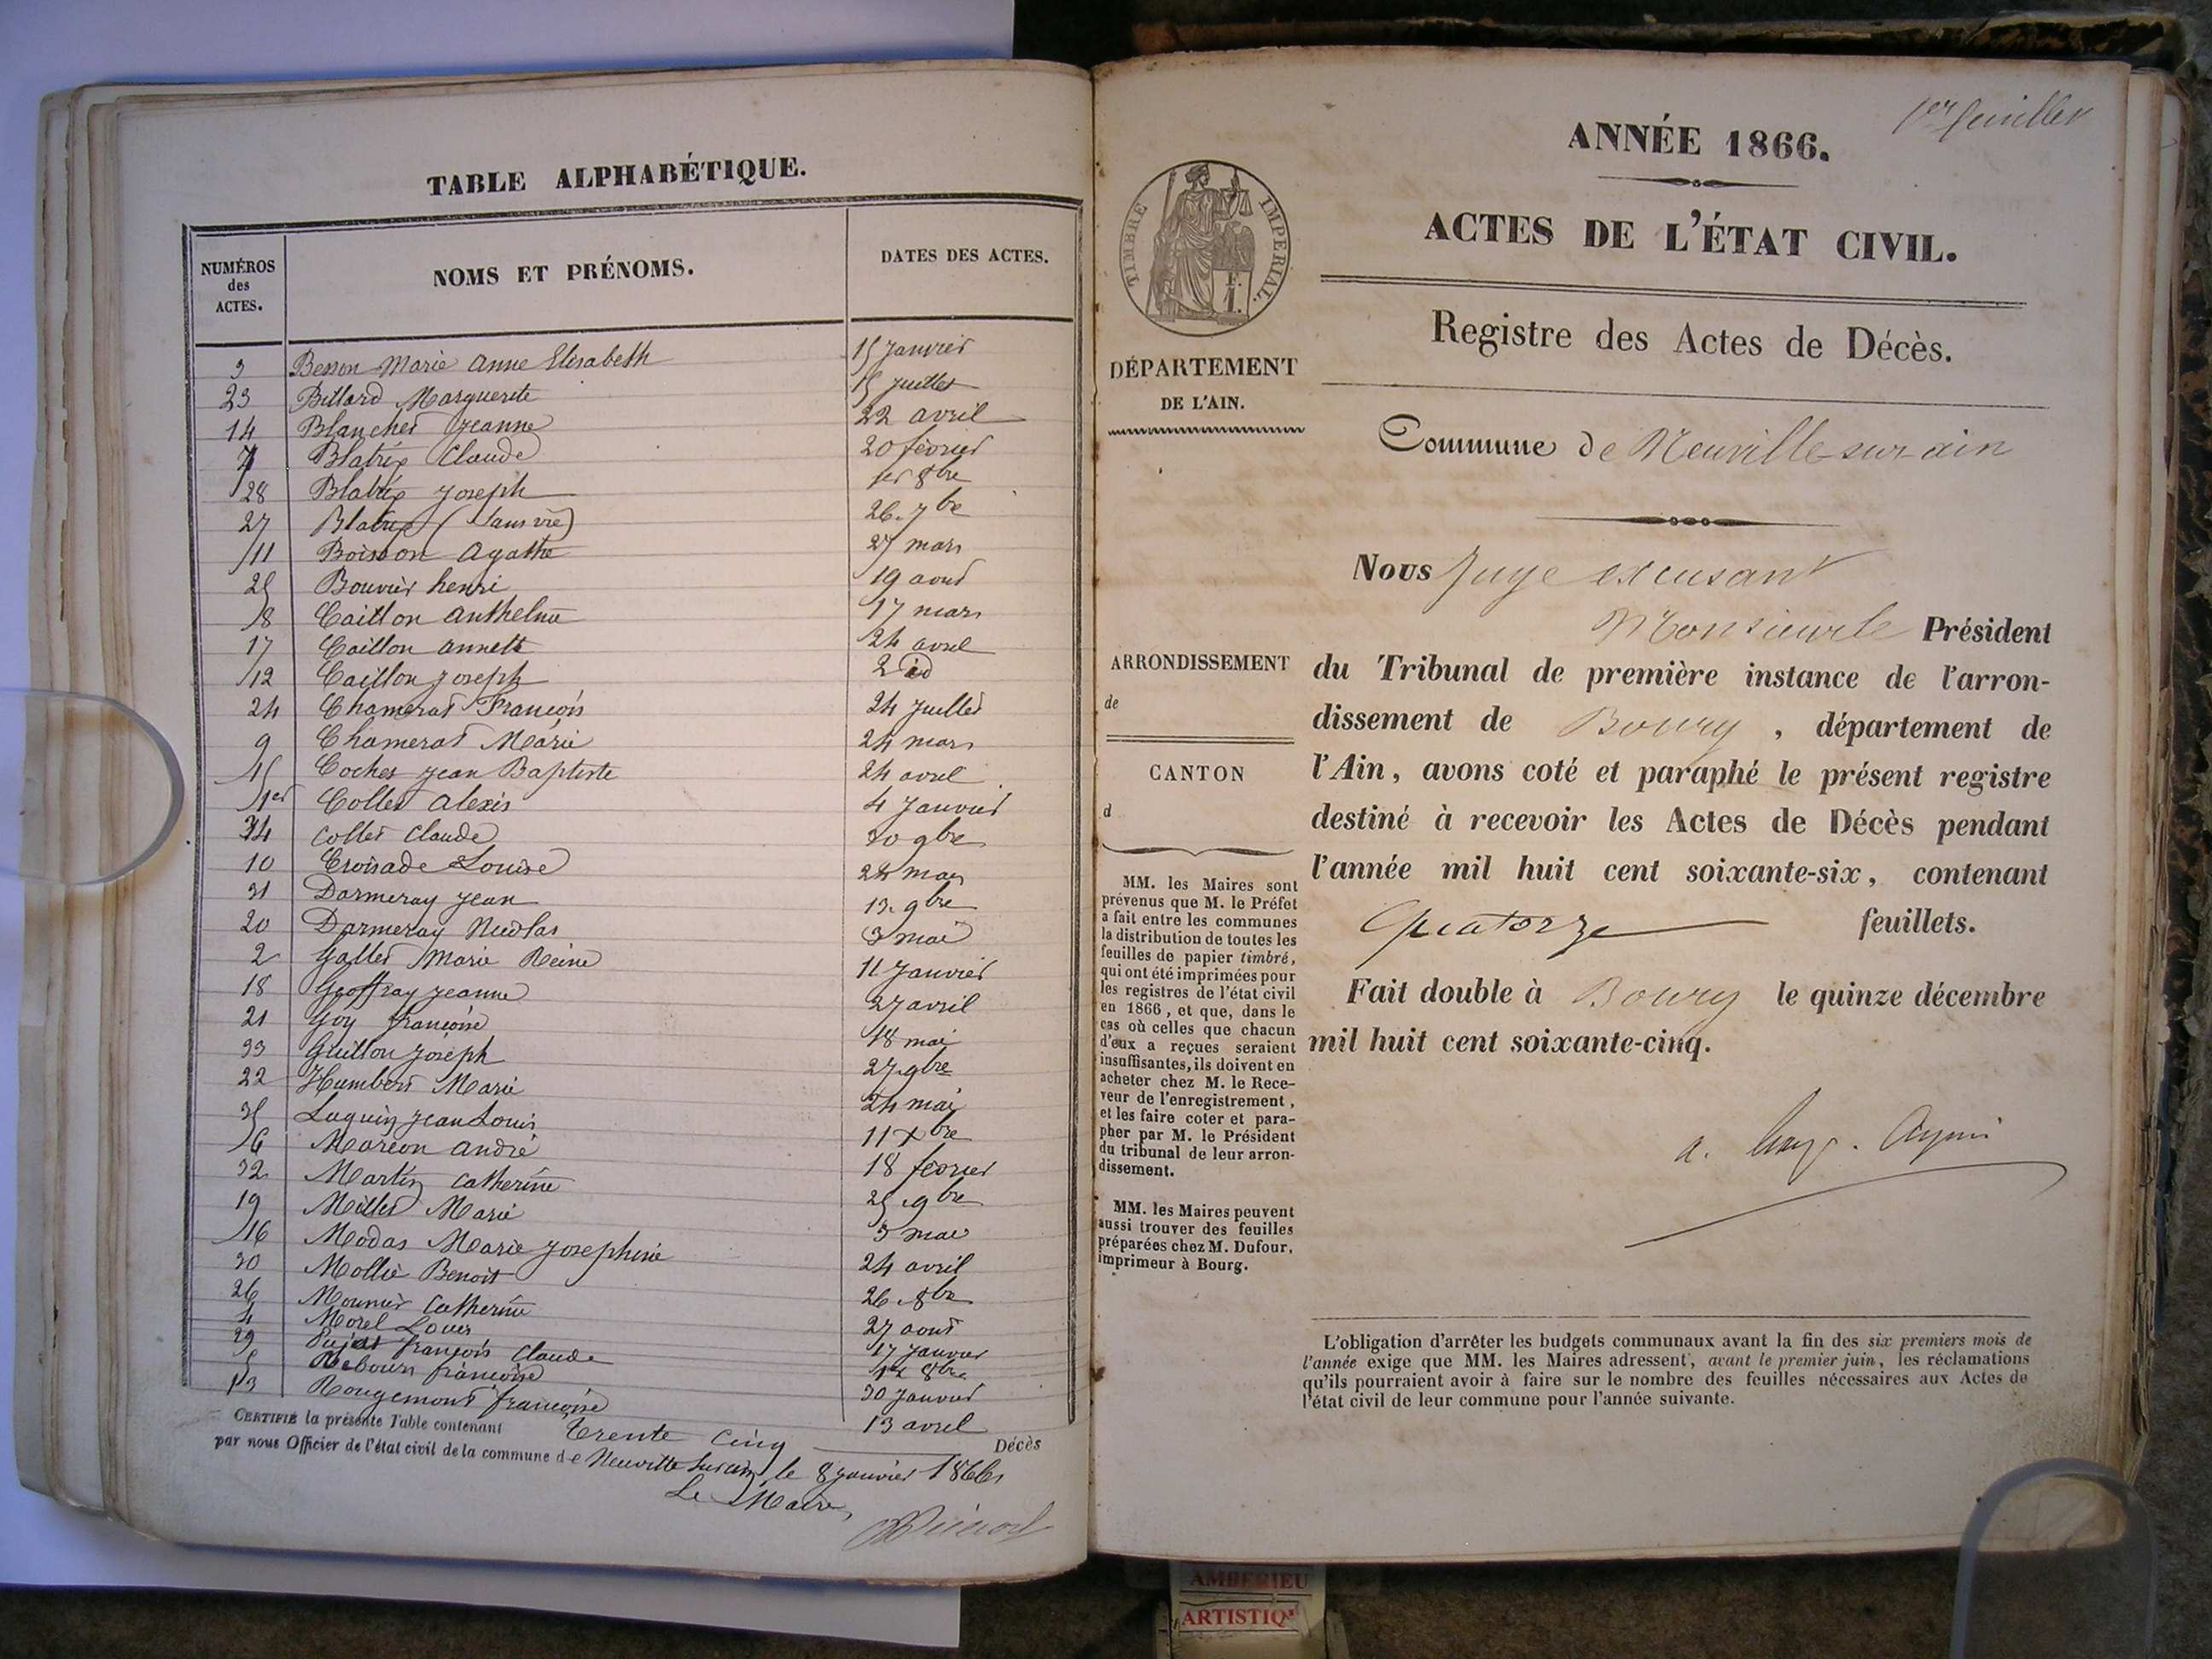 TABLE ALPHABÉTIQUE.
NUMÉROS des ACTES. NOMS ET PRÉNOMS. DATES DES ACTES.
3 Besson Marie Anne Elisabeth 15 Janvier
23 Billard Marguerite 15 Juillet
14 Blanchet Jeanne 22 avril
7 Blatrix Claude 20 fevrier
28 Blatrix Joseph 1er 8bre
27 Blatrix (Sans vie) 26. 7bre
11 Boisson Agathe 27 mars
25 Bouvier henri 19 aout
8 Caillon Anthelme 17 mars
17 Caillon Annette 24 avril
12 Caillon Joseph 2 id
24 Chamerat François 24 Juillet
9 Chamerat Marie 24 mars
15 Cochet Jean Baptiste 24 avril
1er Collet Alexis 4 Janvier
34 Collet Claude 30 9bre
10 Croisade Louise 24 mars
31 Darmeray Jean 13. 9bre
20 Darmeray Nicolas 3 mai
2 Gallet Marie Reine 11 Janvier
18 Geoffray Jeanne 27 avril
21 Goy françoise 18 mai
33 Guillon Joseph 27. 9bre
22 Humbert Marie 24 mai
35 Luquin Jean Louis 11 Xbre
6 Mareon André 18 fevrier
32 Martin Catherine 25. 9bre
19 Millet Marie 3 mai
16 Modas Marie Josephine 24 avril
30 Mollié Benoit 26. 8bre
26 Mounier Catherine 27 aout
4 Morel Louis 17 Janvier
29 Pujat françois Claude 12 8bre
5 Rebourn françoise 30 Janvier
13 Rougemont françoise 13 avril
CERTIFIÉ la présente Table contenant Trente Cinq Décès
par nous Officier de l'état civil de la commune de Neuville sur ain, le 8 janvier 1866
Le Maire,
1er feuillet
ANNÉE 1866.
ACTES DE L'ÉTAT CIVIL.
TIMBRE IMPÉRIAL.
1 F.
Registre des Actes de Décès.
DÉPARTEMENT
DE L'AIN.
Commune de Neuville sur ain
Nous Juge excusant
Monsieur le Président
ARRONDISSEMENT
de
CANTON
d
du Tribunal de première instance de l'arron-
dissement de Bourg, département de
l'Ain, avons coté et paraphé le présent registre
destiné à recevoir les Actes de Décès pendant
l'année mil huit cent soixante-six, contenant
Quatorze feuillets.
Fait double à Bourg le quinze décembre
mil huit cent soixante-cinq.
MM. les Maires sont
prévenus que M. le Préfet
a fait entre les communes
la distribution de toutes les
feuilles de papier timbré,
qui ont été imprimées pour
les registres de l'état civil
en 1866, et que, dans le
cas où celles que chacun
d'eux a reçues seraient
insuffisantes, ils doivent en
acheter chez M. le Rece-
veur de l'enregistrement,
et les faire coter et para-
pher par M. le Président
du tribunal de leur arron-
dissement.
MM. les Maires peuvent
aussi trouver des feuilles
préparées chez M. Dufour,
imprimeur à Bourg.
L'obligation d'arrêter les budgets communaux avant la fin des six premiers mois de
l'année exige que MM. les Maires adressent, avant le premier juin, les réclamations
qu'ils pourraient avoir à faire sur le nombre des feuilles nécessaires aux Actes de
l'état civil de leur commune pour l'année suivante.
AMBERIEU
ARTISTIQ